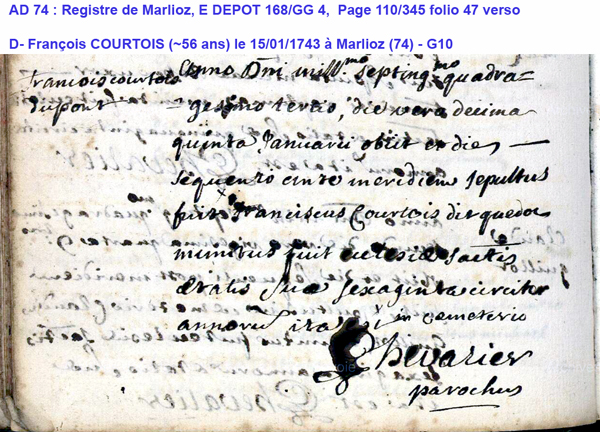 AD 74 : Registre de Marlioz, E DEPOT 168/GG 4, Page 110/345 folio 47 verso
D- François COURTOIS (~56 ans) le 15/01/1743 à Marlioz (74) - G10
francois courtois
dupont
Anno Dni mill.mo septing.mo quadra=
=gesimo tertio, die vera decima
quinta Januarii obiit et die
sequenti ante meridiem sepultus
fuit franciscus Courtois
munitus fuit eclesiæ
ætatis suæ sexaginta circiter
annoru in cemeterio
Chevarier
parochus